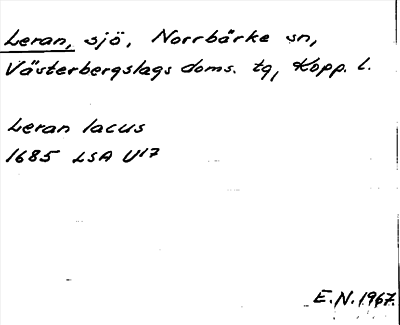 Leran, sjö, Norrbärke sn,
Västerbergslags doms. tg, Kopp. l.
Leran lacus
1685 LSA U17
E.N. 1967.